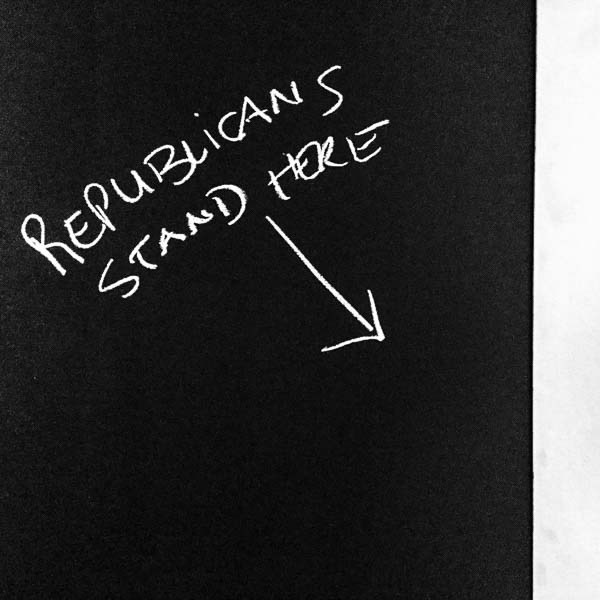 REPUBLiCANS
STAND HERE